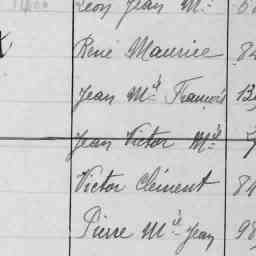 Léon Jean M.ie
René Maurice 84
Jean M.ie François
Jean Victor M.ie
Victor Clément 84
Pierre M.ie Jean 98